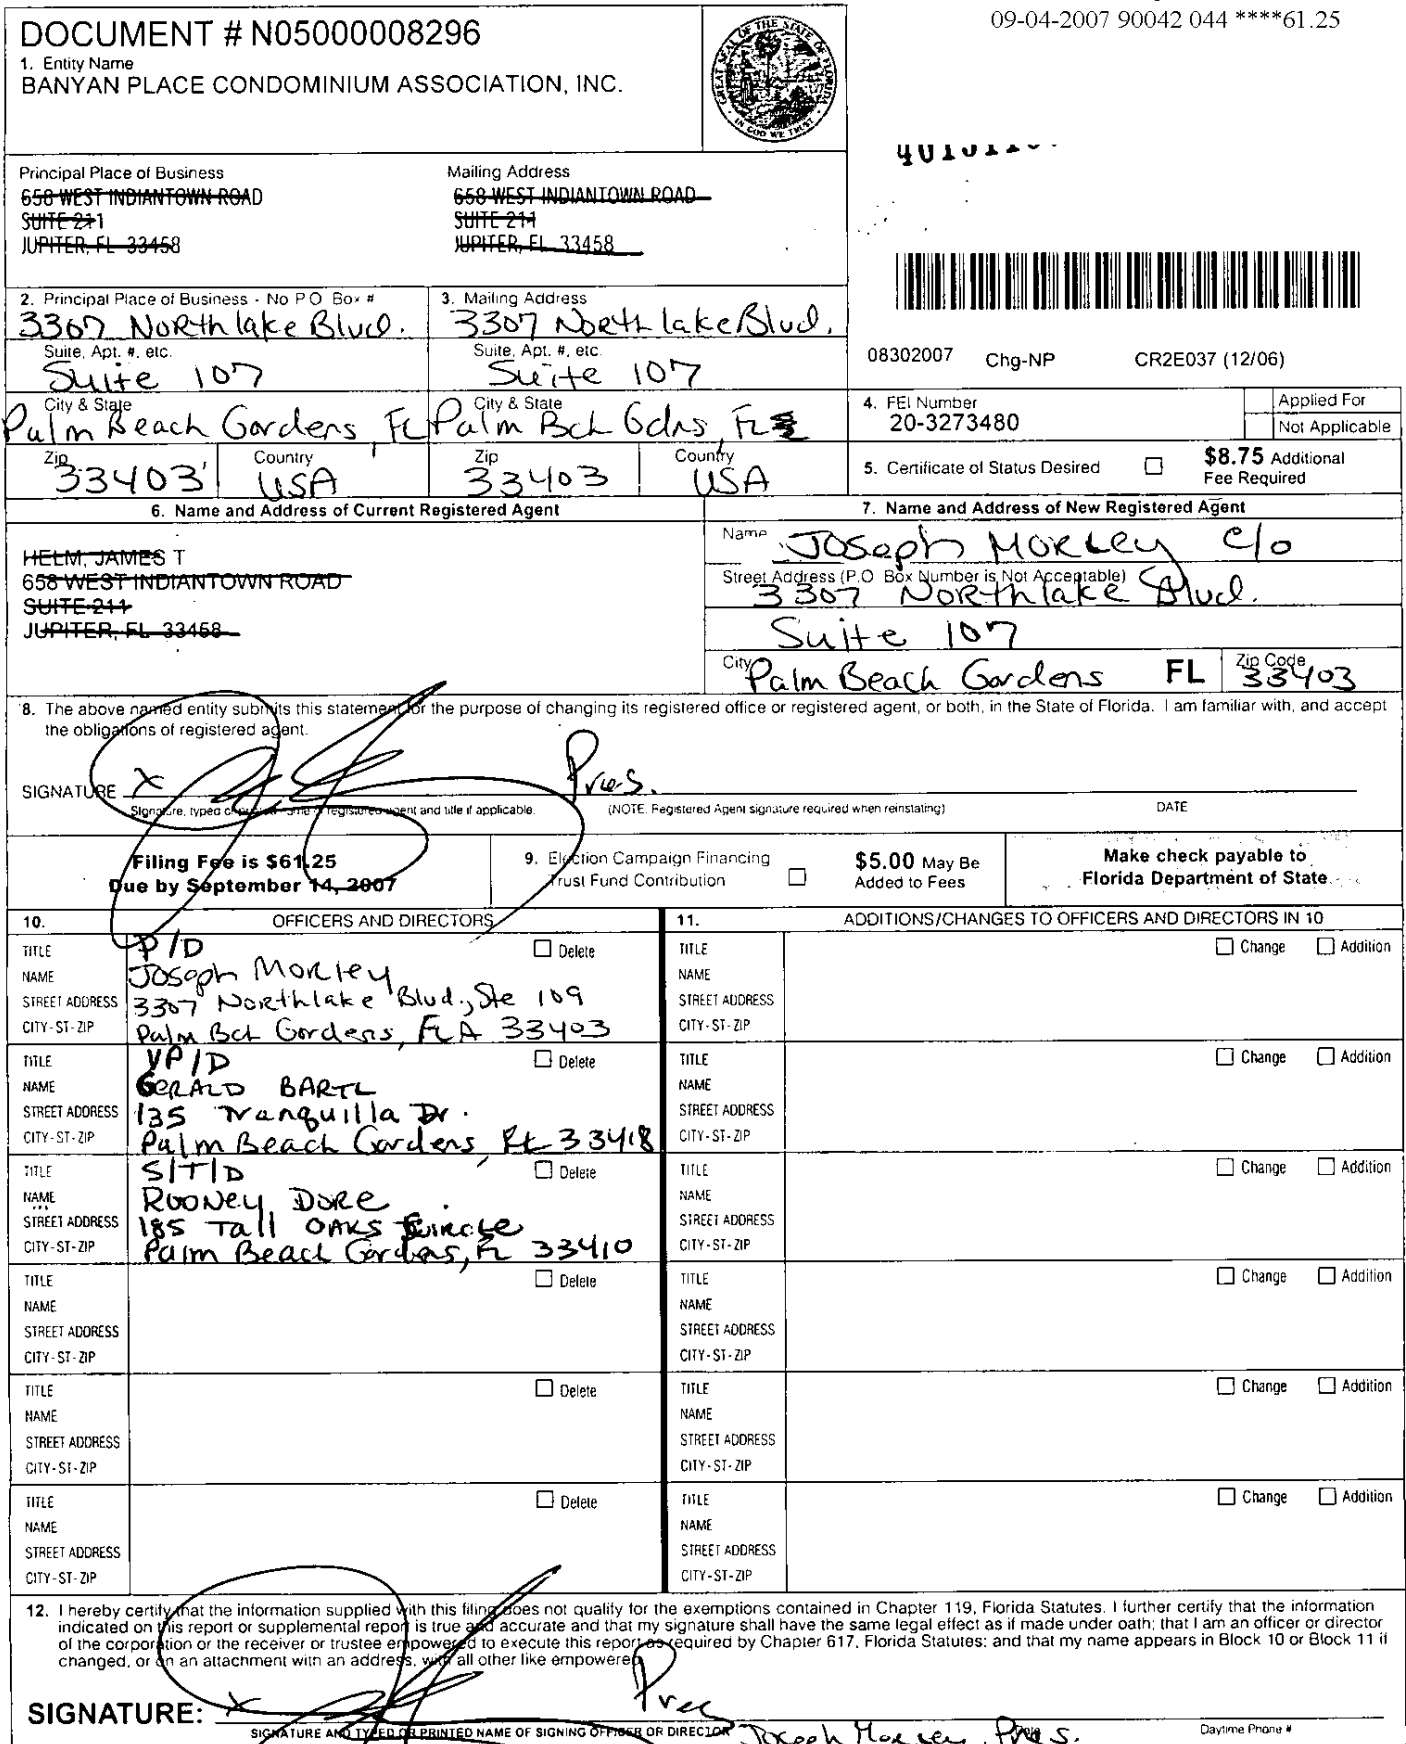 09-04-2007 90042 044 ****61.25
DOCUMENT # N05000008296
1. Entity Name
BANYAN PLACE CONDOMINIUM ASSOCIATION, INC.
GREAT SEAL OF THE STATE OF FLORIDA
IN GOD WE TRUST
Principal Place of Business
658 WEST INDIANTOWN ROAD
SUITE 211
JUPITER, FL 33458
Mailing Address
658 WEST INDIANTOWN ROAD
SUITE 211
JUPITER, FL 33458
2. Principal Place of Business - No P O Box #
3307 Northlake Blvd.
Suite, Apt. #, etc.
Suite 107
City & State
Palm Beach Gardens, FL
Zip
33403
Country
USA
3. Mailing Address
3307 Northlake Blvd.
Suite, Apt. #, etc.
Suite 107
City & State
Palm Bch Gdns, FL
Zip
33403
Country
USA
08302007 Chg-NP CR2E037 (12/06)
4. FEI Number
20-3273480
Applied For
Not Applicable
5. Certificate of Status Desired
$8.75 Additional
Fee Required
6. Name and Address of Current Registered Agent
HELM, JAMES T
658 WEST INDIANTOWN ROAD
SUITE 211
JUPITER, FL 33458
7. Name and Address of New Registered Agent
Name Joseph Morley c/o
Street Address (P.O Box Number is Not Acceptable)
3307 Northlake Blvd.
Suite 107
City Palm Beach Gardens FL Zip Code 33403
8. The above named entity submits this statement for the purpose of changing its registered office or registered agent, or both, in the State of Florida. I am familiar with, and accept
the obligations of registered agent.
SIGNATURE X Pres.
Signature, typed or printed name of registered agent and title if applicable. (NOTE. Registered Agent signature required when reinstating) DATE
Filing Fee is $61.25
Due by September 14, 2007
9. Election Campaign Financing
Trust Fund Contribution
$5.00 May Be
Added to Fees
Make check payable to
Florida Department of State
10. OFFICERS AND DIRECTORS
TITLE P/D Delete
NAME Joseph Morley
STREET ADDRESS 3307 Northlake Blvd., Ste 109
CITY-ST-ZIP Palm Bch Gardens, FLA 33403
TITLE VP/D Delete
NAME GERALD BARTL
STREET ADDRESS 135 Tranquilla Dr.
CITY-ST-ZIP Palm Beach Gardens, FL 33418
TITLE S/T/D Delete
NAME RODNEY DORE
STREET ADDRESS 185 Tall OAKS Circle
CITY-ST-ZIP Palm Beach Gardens, FL 33410
TITLE Delete
NAME
STREET ADDRESS
CITY-ST-ZIP
TITLE Delete
NAME
STREET ADDRESS
CITY-ST-ZIP
TITLE Delete
NAME
STREET ADDRESS
CITY-ST-ZIP
11. ADDITIONS/CHANGES TO OFFICERS AND DIRECTORS IN 10
TITLE Change Addition
NAME
STREET ADDRESS
CITY-ST-ZIP
TITLE Change Addition
NAME
STREET ADDRESS
CITY-ST-ZIP
TITLE Change Addition
NAME
STREET ADDRESS
CITY-ST-ZIP
TITLE Change Addition
NAME
STREET ADDRESS
CITY-ST-ZIP
TITLE Change Addition
NAME
STREET ADDRESS
CITY-ST-ZIP
TITLE Change Addition
NAME
STREET ADDRESS
CITY-ST-ZIP
12. I hereby certify that the information supplied with this filing does not qualify for the exemptions contained in Chapter 119, Florida Statutes. I further certify that the information
indicated on this report or supplemental report is true and accurate and that my signature shall have the same legal effect as if made under oath; that I am an officer or director
of the corporation or the receiver or trustee empowered to execute this report as required by Chapter 617, Florida Statutes; and that my name appears in Block 10 or Block 11 if
changed, or on an attachment with an address, with all other like empowered
SIGNATURE: X Pres
SIGNATURE AND TYPED OR PRINTED NAME OF SIGNING OFFICER OR DIRECTOR Joseph Morley, Pres. Daytime Phone #